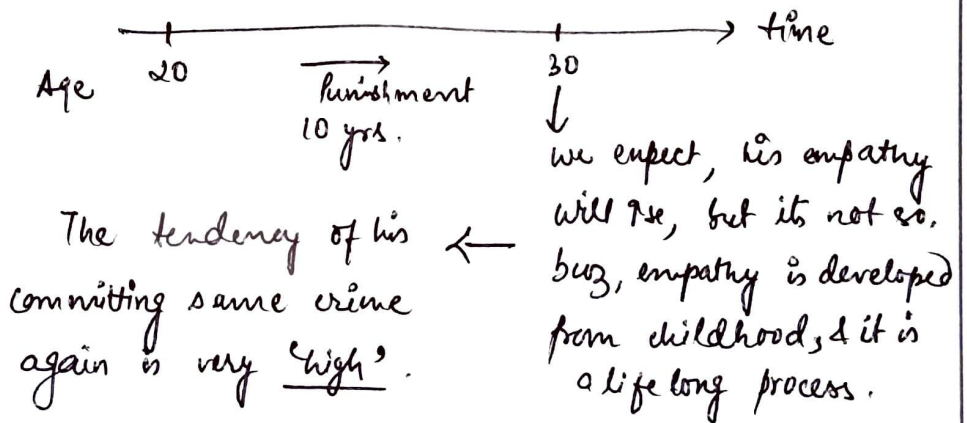 time
Age 20 30
Punishment
10 yrs.
we expect, his empathy
will rse, but its not so.
buz, empathy is developed
from childhood, & it is
a life long process.
The tendency of his
committing same crime
again is very 'high'.